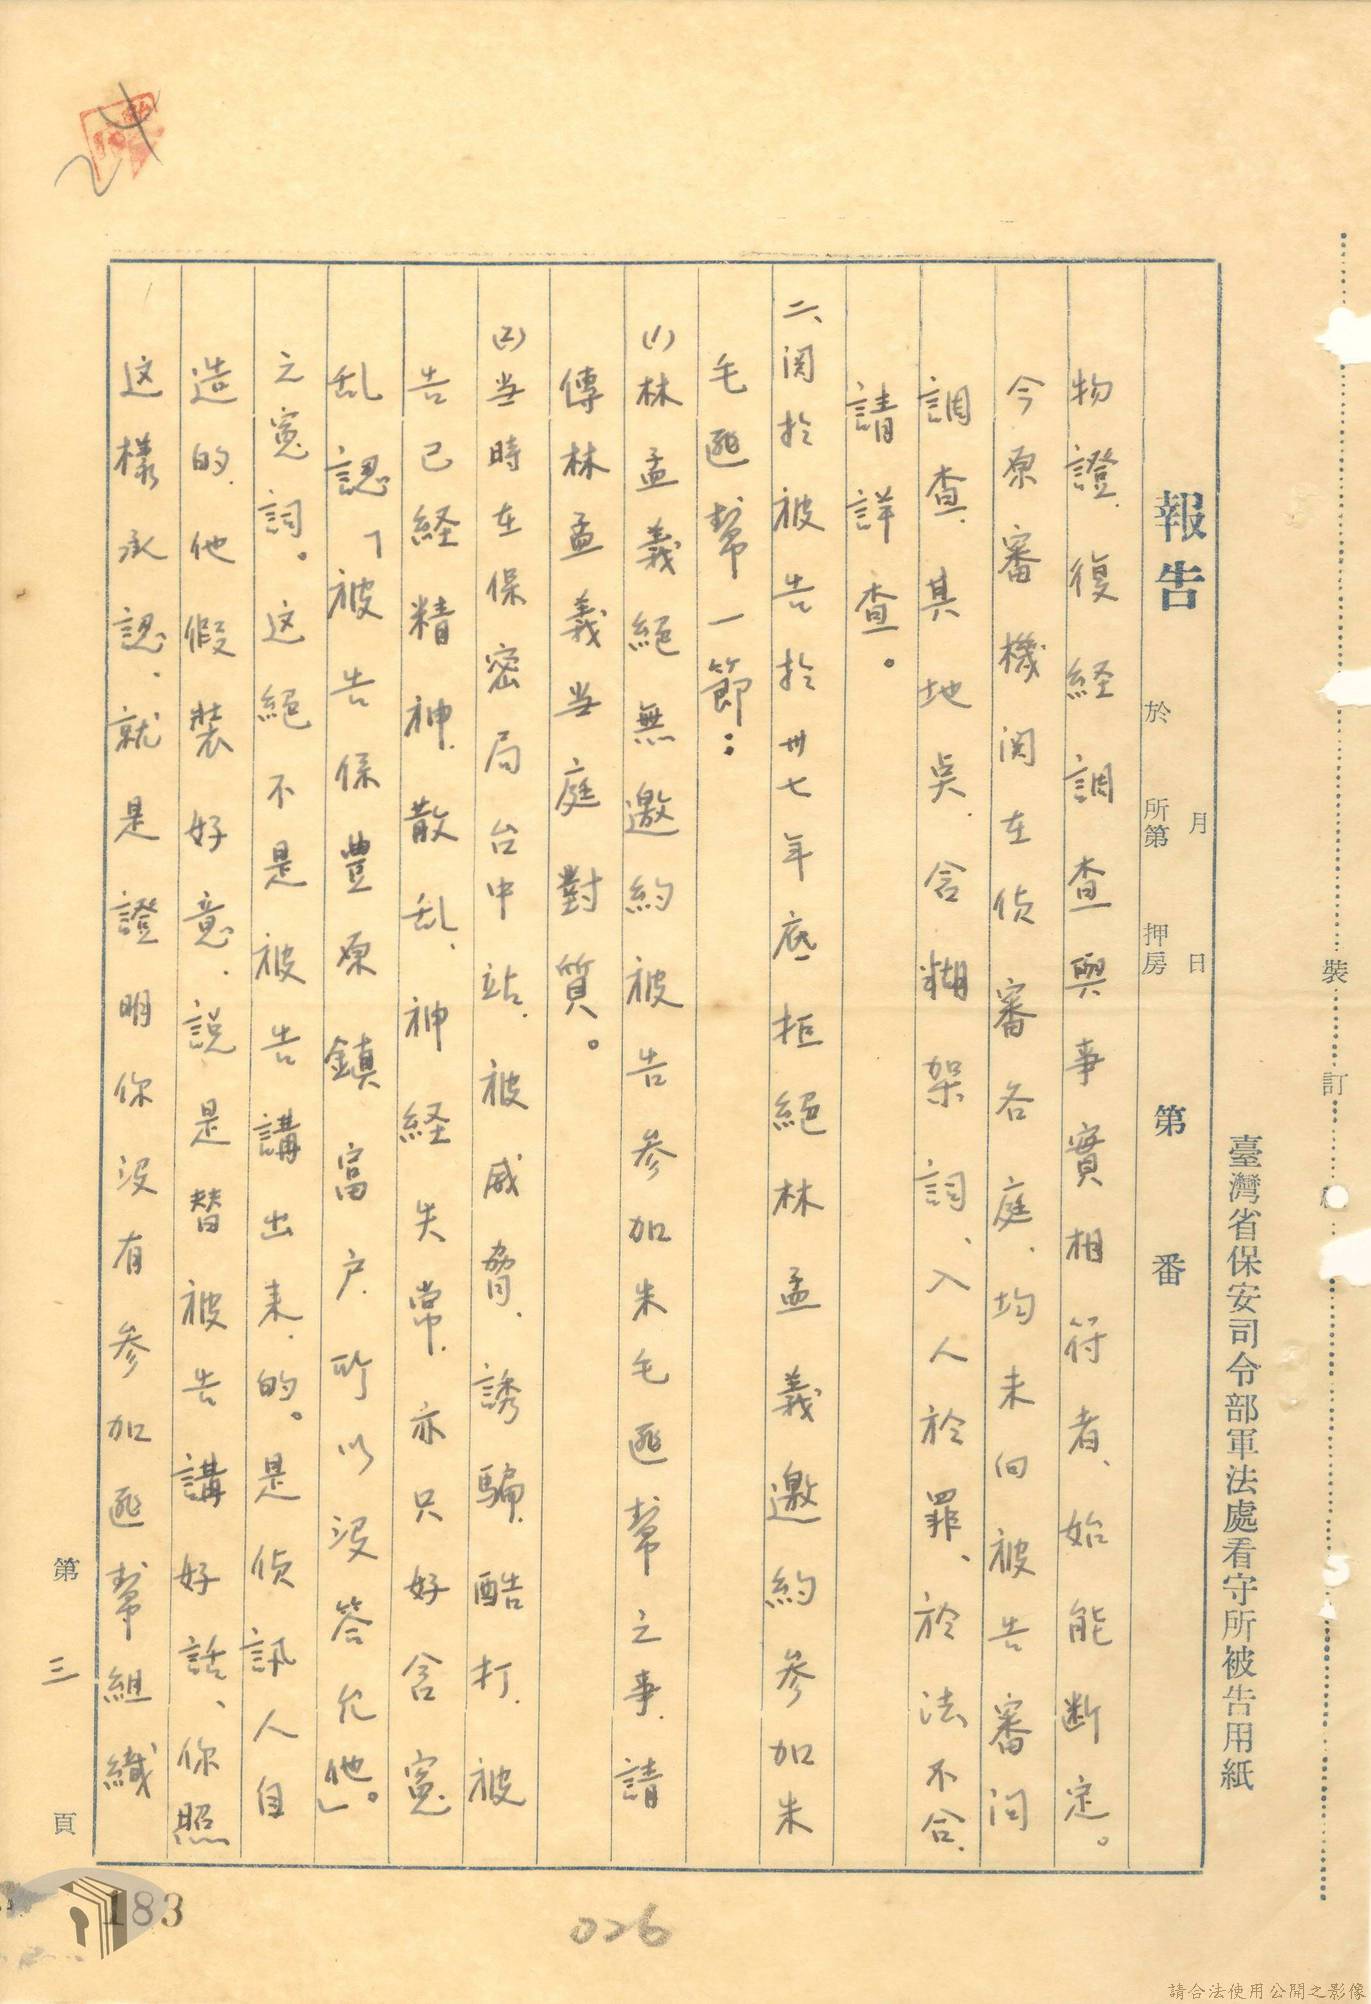 裝訂
臺灣省保安司令部軍法處看守所被告用紙
報告 於 所第 押房 月 日 第 番
物證、復経調查與事實相符者、始能断定。
今原審機関在偵審各庭、均未向被告審问
調查、其地奌、含糊架詞、入人於罪、於法不合、
請詳查。
二、関於被告於卅七年底拒絕林孟義邀約參加朱
毛匪幫一節：
(1)林孟義絕無邀約被告參加朱毛匪幫之事、請
傳林孟義当庭對質。
(2)当時在保密局台中站、被威脅、誘騙、酷打、被
告已経精神、散乱、神経失常、亦只好含寃
乱認「被告係豊原鎮富户、所以没答允他」。
之寃詞。这絕不是被告講出来、的。是偵訊人自
造的、他假裝好意、説是替被告講好話、你照
这樣承認、就是證明你没有參加匪幫組織
第三頁
183
026
請合法使用公開之影像